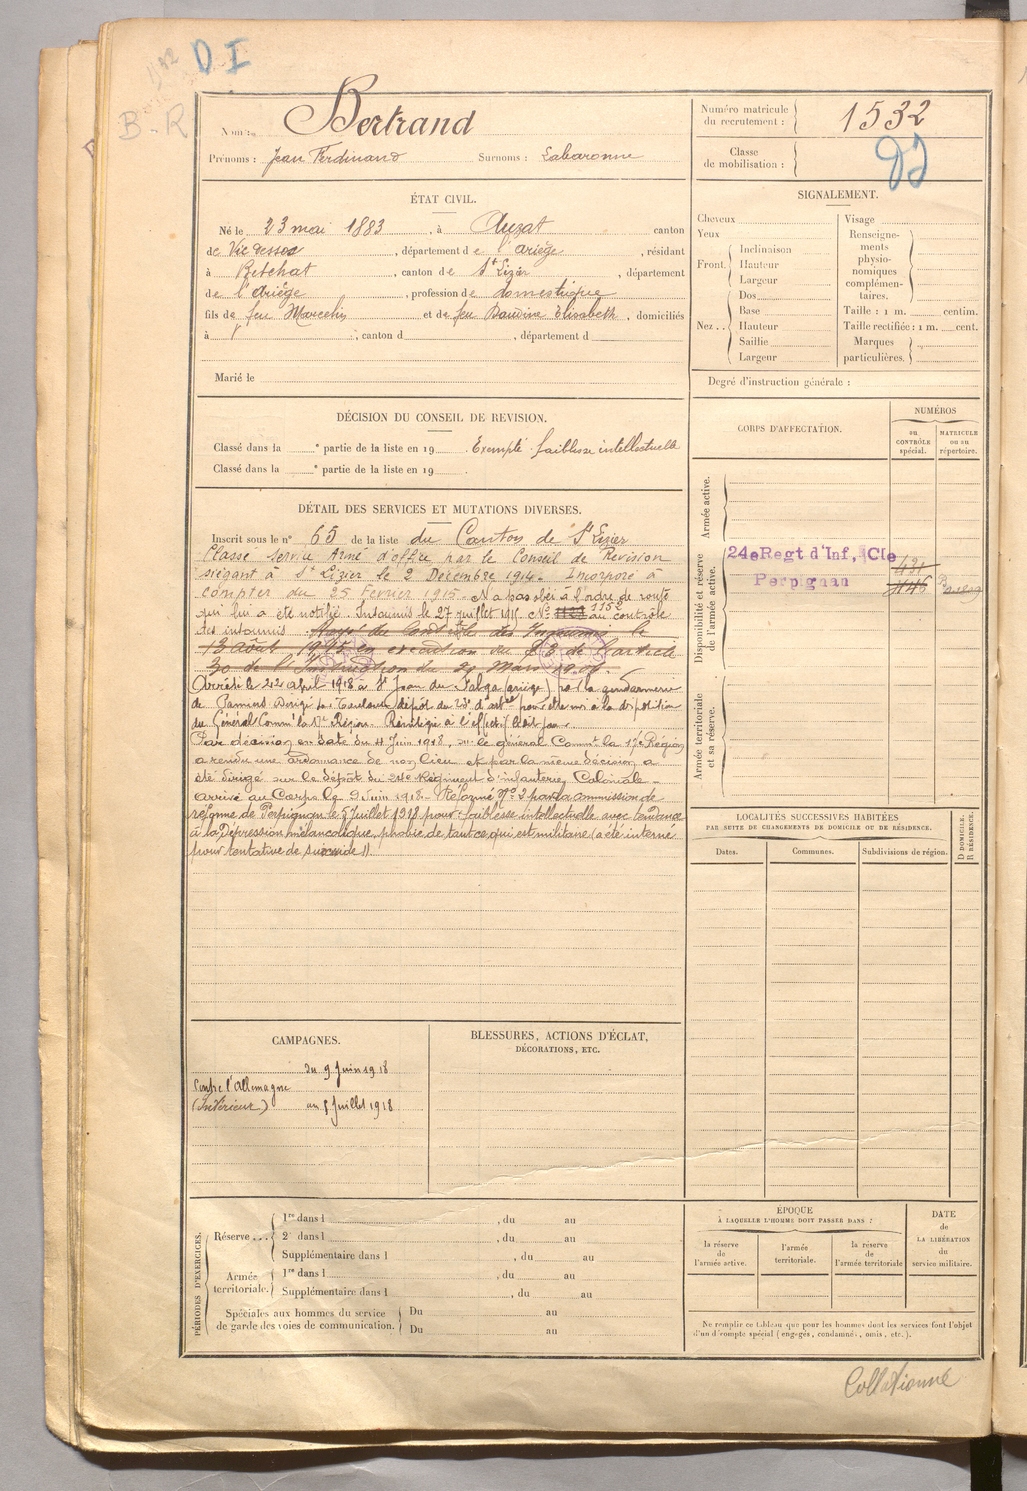 D I
B-R
Nom : Bertrand
Prénoms : Jean Ferdinand Surnoms : Labaronne
Numéro matricule du recrutement : 1532
Classe de mobilisation :
ÉTAT CIVIL.
Né le 23 mai 1883, à Auzat canton
de Vicdessos, département de l'ariège, résidant
à Betchat, canton de St Lizier, département
de l'Ariège, profession de domestique
fils de feu Marcelin et de feu Elisabeth, domiciliés
à , canton d , département d
Marié le
SIGNALEMENT.
Cheveux
Yeux
Front. Inclinaison
Hauteur
Largeur
Nez . . Dos
Base
Hauteur
Saillie
Largeur
Visage
Renseignements physionomiques complémentaires.
Taille : 1 m. centim.
Taille rectifiée : 1 m. cent.
Marques particulières.
Degré d'instruction générale :
DÉCISION DU CONSEIL DE REVISION.
Classé dans la e partie de la liste en 19 . Exempté. faiblesse intellectuelle
Classé dans la e partie de la liste en 19 .
DÉTAIL DES SERVICES ET MUTATIONS DIVERSES.
Inscrit sous le n° 65 de la liste du Canton de St Lizier
Classé Service Armé d'office par le Conseil de Revision
siégeant à St Lizier le 2 Décembre 1914. Incorporé à
compter du 25 Février 1915. N'a pas obéi à l'ordre de route
qui lui a été notifié. Insoumis le 27 juillet 1915. No 1152 au contrôle
des insoumis. Rayé du Contrôle des Insoumis le
13 août 1915 en exécution du § 3 de l'article
30 de l'Instruction du 21 Mars 1907.
Arrêté le 22 avril 1918 à St Jean du Falga (ariège) par la gendarmerie
de Pamiers. Dirigé sur Toulouse, dépôt du 23e d'artie pour être mis à la disposition
du Général Commt la 17e Région. Réintégré à l'effectif
Par décision en date du 4 Juin 1918, le général Commt la 17e Région
a rendu une ordonnance de non lieu et par la même décision a
été dirigé sur le dépôt du 24e Régiment d'infanterie Coloniale.
arrivé au Corps le 9 Juin 1918. Réformé No 2 par la commission de
réforme de Perpignan le 5 Juillet 1918 pour : faiblesse intellectuelle avec tendance
à la Dépression mélancolique, phobie de tout ce qui est militaire (a été interné
pour tentative de suicide)).
CORPS D'AFFECTATION.
NUMÉROS
au CONTRÔLE spécial.
MATRICULE ou au répertoire.
Armée active.
Disponibilité et réserve de l'armée active.
24e Regt d'Inf, Cle
Perpignan
Armée territoriale et sa réserve.
LOCALITÉS SUCCESSIVES HABITÉES
PAR SUITE DE CHANGEMENTS DE DOMICILE OU DE RÉSIDENCE.
Dates. Communes. Subdivisions de région. D DOMICILE. R RÉSIDENCE.
CAMPAGNES.
Contre l'Allemagne
(Intérieur)
du 9 Juin 1918
au 5 Juillet 1918
BLESSURES, ACTIONS D'ÉCLAT,
DÉCORATIONS, ETC.
PÉRIODES D'EXERCICES.
Réserve . . . 1re dans l , du au
2e dans l , du au
Supplémentaire dans l , du au
Armée territoriale. 1re dans l , du au
Supplémentaire dans l , du au
Spéciales aux hommes du service de garde des voies de communication. Du au
Du au
ÉPOQUE
À LAQUELLE L'HOMME DOIT PASSER DANS :
la réserve de l'armée active.
l'armée territoriale.
la réserve de l'armée territoriale
DATE de LA LIBÉRATION du service militaire.
Ne remplir ce tableau que pour les hommes dont les services font l'objet
d'un décompte spécial (engagés, condamnés, omis, etc.).
Collationné